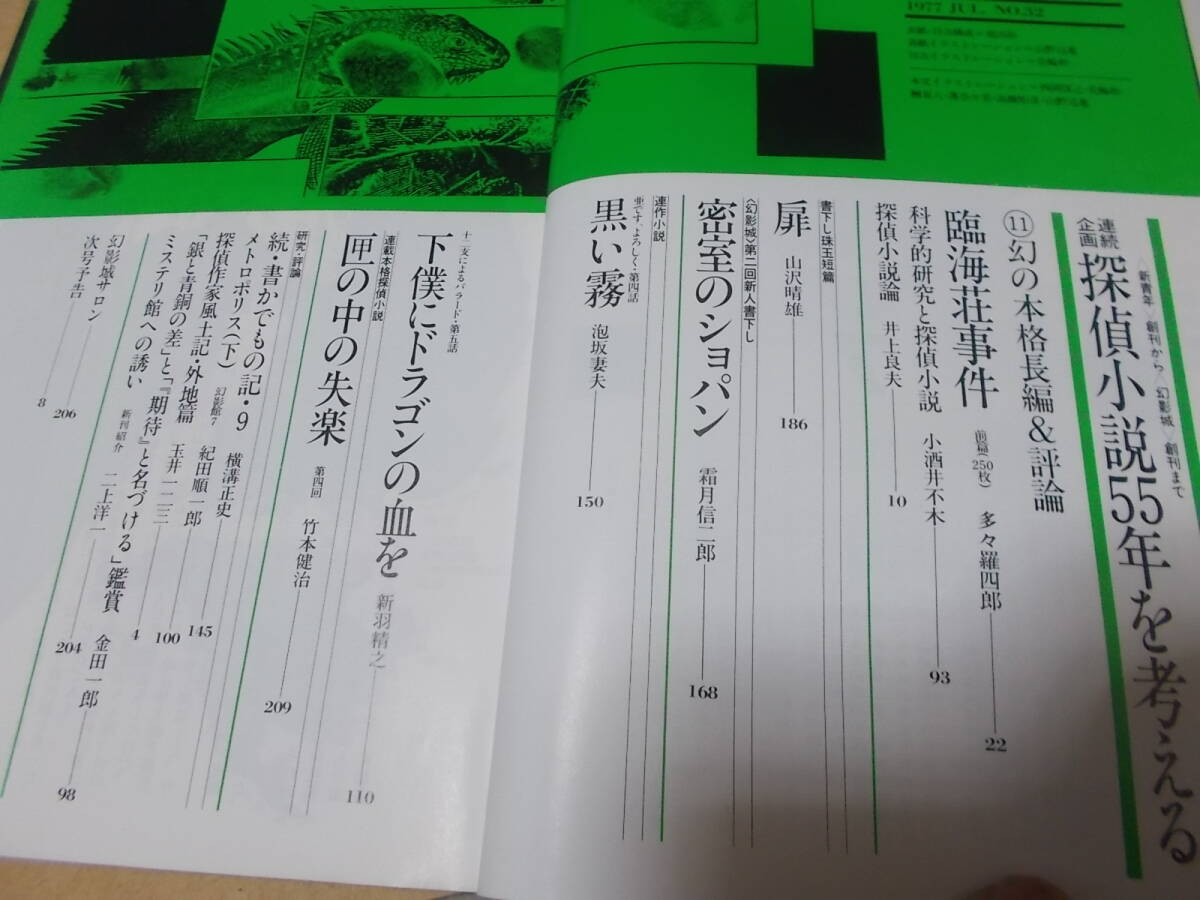 1977 JUL. NO.52
〈新青年〉創刊から〈幻影城〉創刊まで
連続企画 探偵小説55年を考える
⑪幻の本格長編&評論
臨海荘事件 前篇(250枚) 多々羅四郎 22
科学的研究と探偵小説 小酒井不木 93
探偵小説論 井上良夫 10
書下し珠玉短篇
扉 山沢晴雄 186
〈幻影城〉第二回新人書下し
密室のショパン 霜月信二郎 168
連作小説
亜です、よろしく・第四話
黒い霧 泡坂妻夫 150
十二支によるバラード・第五話
下僕にドラゴンの血を 新羽精之 110
連載本格探偵小説
匣の中の失楽 第四回 竹本健治 209
研究・評論
続・書かでもの記・9 横溝正史 145
メトロポリス(下) 幻影館7 紀田順一郎 100
探偵作家風土記・外地篇 玉井一二三 4
「銀と青銅の差」と「『期待』と名づける」鑑賞 金田一郎 98
ミステリ館への誘い 新刊紹介 二上洋一 204
幻影城サロン 206
次号予告 8